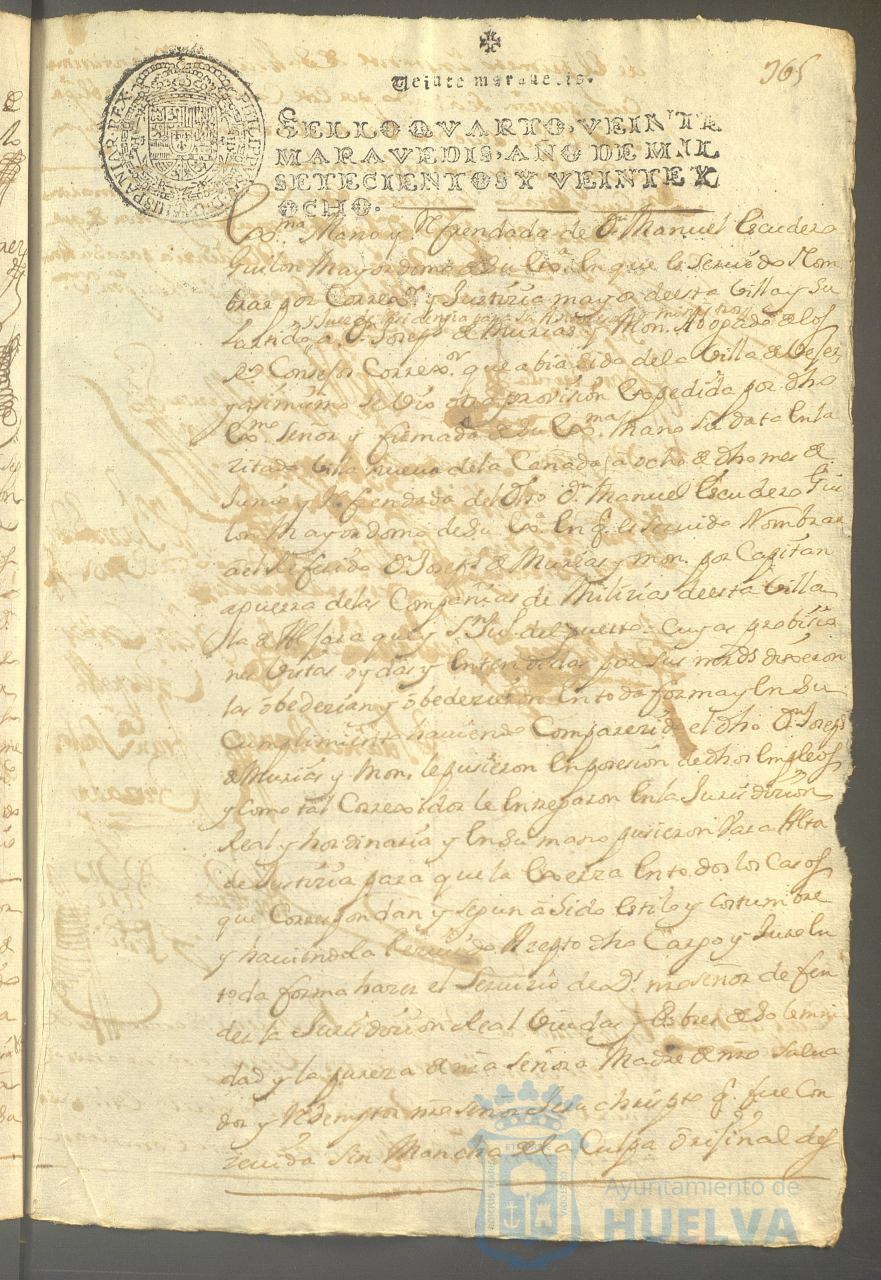 365
Veinte maravedis.
SELLO QVARTO, VEINTE
MARAVEDIS, AÑO DE MIL
SETECIENTOS Y VEINTE Y
OCHO.
PHILIPPVS V D G HISPANIAR REX
Exma Mano y Refrendada de Dn Manuel Escudero
Guilon Mayordomo de Su Exa En que es Seruido Nom
brar por Correxor y Justizia mayor de esta Villa y Su
y Juez de residenzia para la
tierra a Dn Joseph de Murias y Mon. Abogado de los
Rs Consejos Correxor que abia Sido de la Villa de
y asimismo Se Vio otra prouision Expedida por dho
Exmo Señor y firmada de Su Exma Mano Su data En la
zitada Villa nueua de la Cañada a ocho de dho mes de
Junio y Refrendada del dho Dn Manuel Escudero Gui
lon Mayordomo de Su Exa En q. es Seruido Nombrar
al Referido Dn Joseph de Murias y mon. por Capitan
aguerra de las Compañias de Milizias de esta Villa
la de Aljaraque y Sn Juo del puerto. Cuyas probisio
nes Vistas oydas y Entendidas por sus mrds dixeron
las obedezian y obedezieron En toda forma y En Su
Cumplimiento hauiendo Comparezido el dho Dn Joseph
de Murias y Mon. le pusieron En posesion de dhos Empleos
y Como tal Correxidor le Entregaron En la Jurisdizion
Real y hordinaria y En Su mano pusieron Vara Alta
de Justizia para que la Exerza En todos los Casos
que Correspondan y segun a Sido Estilo y Costumbre
y hauiendola Reziuido Azepto dho Cargo y Juro En
toda forma hazer el Seruizio de Ds. nro señor defen
der la Jurisdizion Real Viudas y Pobres de Solemni
dad y la pureza de nra Señora Madre de nro Salua
dor y Redemptor nro señor Jesu christo q. fue Con
zeuida Sin Mancha de la Culpa orijinal des
Ayuntamiento de
HUELVA